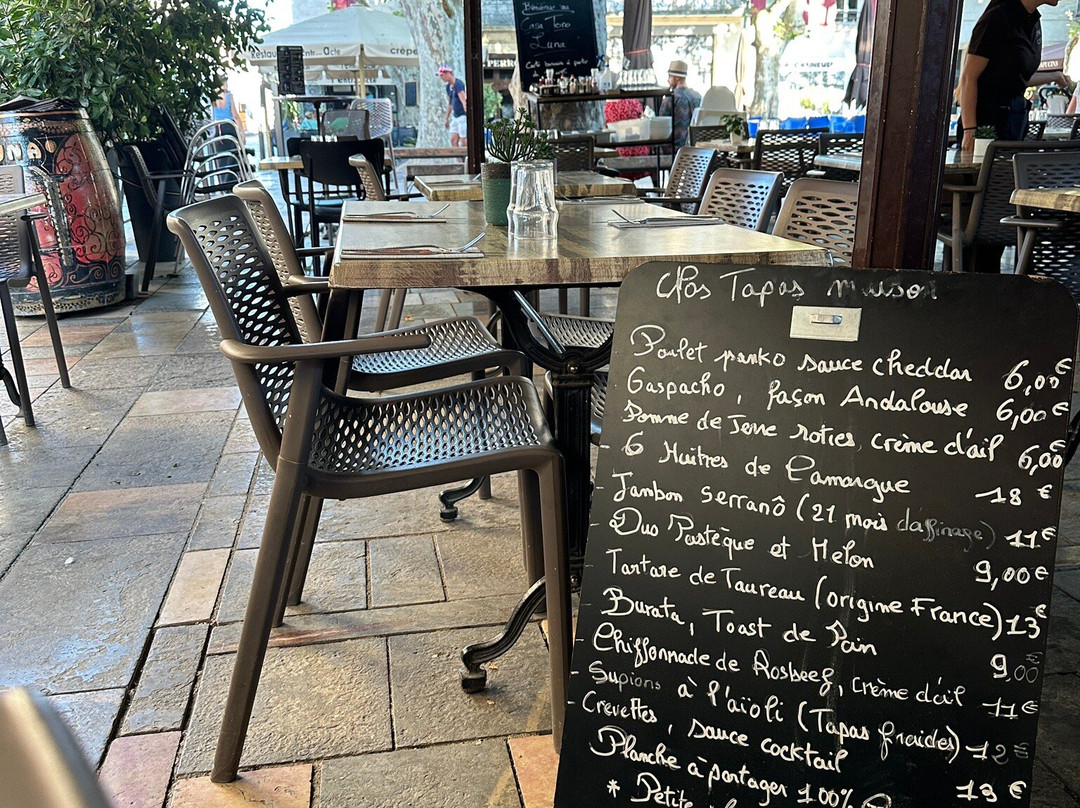 Casa Tono
Luna
Nos Tapas maison
Poulet panko sauce cheddar 6,00€
Gaspacho, façon Andalouse 6,00€
Pomme de Terre roties, crème d'ail 6,00
- 6 Huitres de Camargue 18 €
- Jambon Serranô (21 mois d'affinage) 11€
- Duo Pastèque et Melon 9,00€
- Tartare de Taureau (origine France) 13€
- Burata, Toast de Pain 9,00
- Chiffonnade de Rosbeef, crème d'ail 11€
- Supions à l'aïoli (Tapas froides) 12€
- Crevettes, sauce cocktail 13€
Planche à partager 100%
* Petite